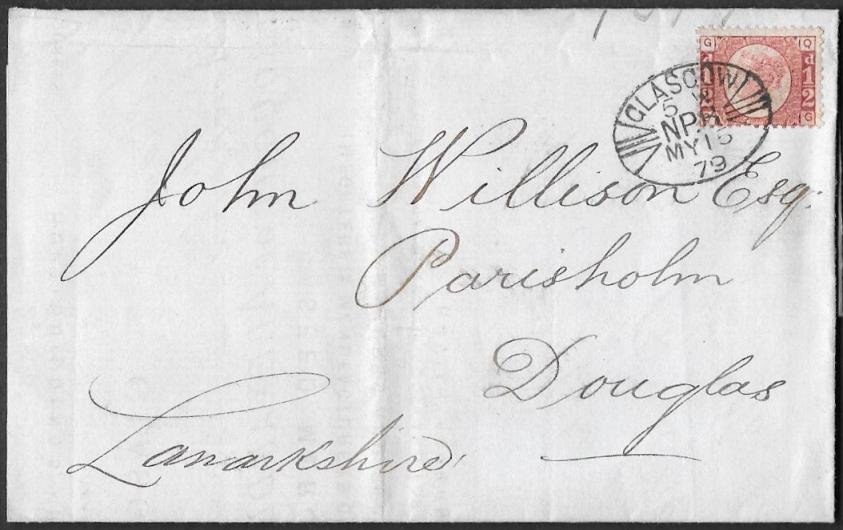 GLASGOW
5 
NPB
MY 15
79
G Q
d 1/2 d 1/2
Q G
John Willison Esq.
Parisholm
Douglas
Lanarkshire